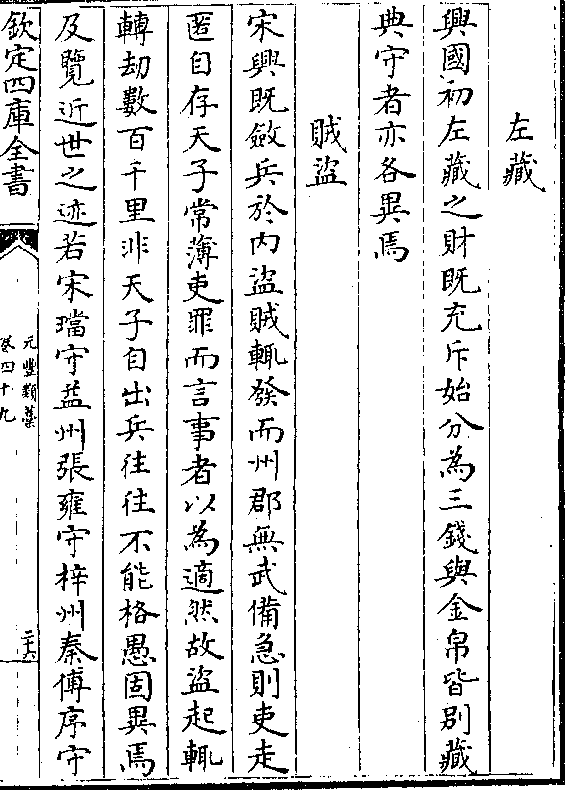 左藏
興國初左藏之財既充斥始分為三錢與金帛皆別藏
典守者亦各異焉
賊盜
宋興既斂兵於内盜賊輒發而州郡無武備急則吏走
匿自存天子常薄吏罪而言事者以為適然故盜起輒
轉劫數百千里非天子自出兵往往不能格愚固異焉
及覽近世之迹若宋璫守益州張雍守梓州秦傅序守
欽定四庫全書
元豐類藁
卷四十九
二十六